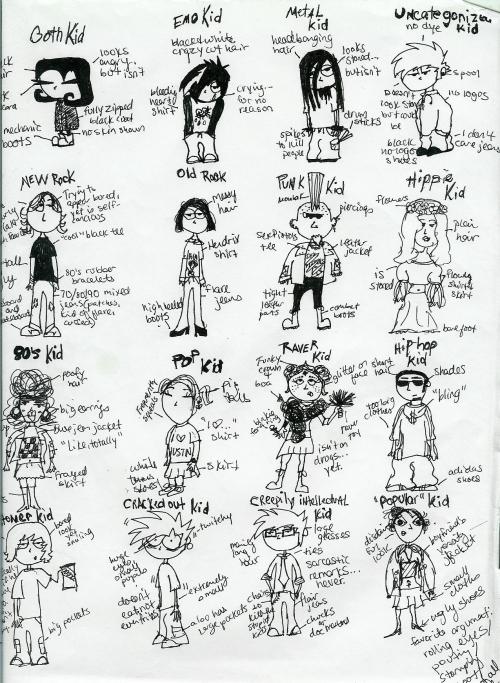 Goth Kid
looks
angry...
but isn't
fully zipped
black coat
no skin shown
mechanic
boots
EMO Kid
black and white
crazy cut hair
bleeding
heart
shirt
crying...
for no
reason
METAL
Kid
headbanging
hair
looks
stoned...
but isn't
drum
sticks
spikes
to kill
people
Uncategorized
Kid
no dye
spool
no logos
doesn't
look stoned
but could
be
I don't
care jeans
black
no logo
shoes
NEW ROCK
Trying to
appear bored,
yet is self-
conscious
"cool" black tee
80's rubber
bracelets
70/80/90 mixed
jeans, patches,
OLD ROCK
messy
hair
Hendrix
shirt
flare
jeans
high heeled
boots
PUNK Kid
piercings
sex pistols
tee
leather
jacket
tight
pants
combat
boots
Hippie
Kid
flowers
plain
hair
is
stoned
flowing
shirt &
skirt
barefoot
80's Kid
poofy
hair
big earrings
jean jacket
"Like, totally"
frayed
skirt
POP Kid
pig
tails
"I ♡..."
shirt
I ♡
JUSTIN
skirt
white
tennis
shoes
RAVER
Kid
Funky
crown
boa
glitter on
face
isn't on
drugs...
yet.
Hip hop
Kid
short
hair
shades
"bling"
too big
clothes
adidas
shoes
STONER Kid
bored
smiling
big pockets
CRACKED OUT Kid
twitchy
huge
eyes
pupils
extremely
small
doesn't
eat
also has
large pockets
CREEPILY INTELLECTUAL
Kid
long
hair
lose
glasses
ties
sarcastic
remarks...
flair
jeans
chucks
or
doc martens
"POPULAR" Kid
boyfriend's
varsity
jacket
small
clothes
ugly shoes
favorite argument:
rolling eyes,
pouting
stomping